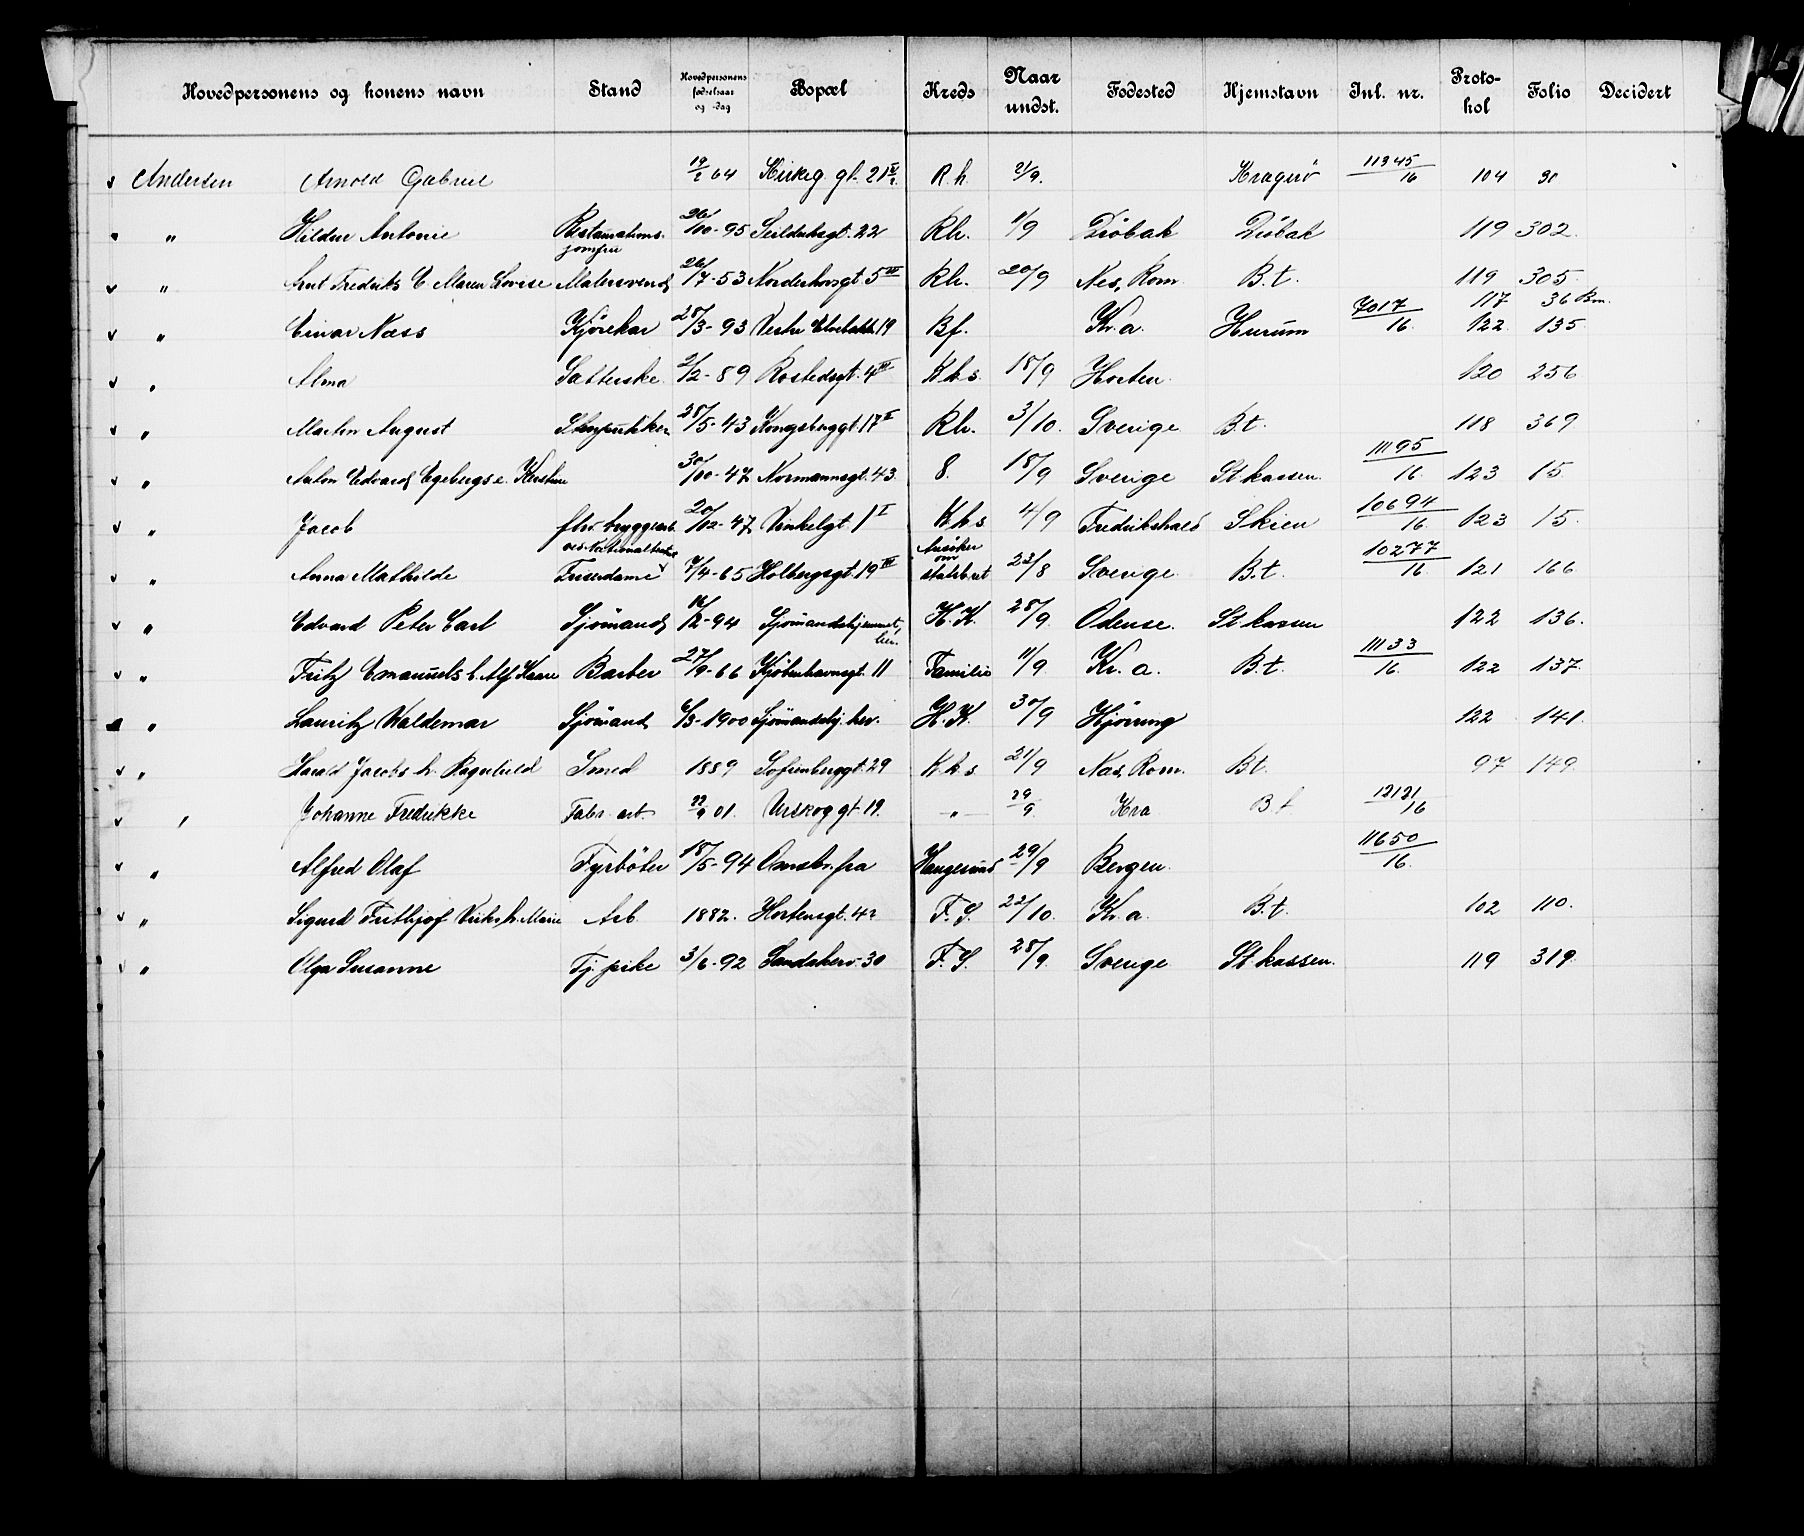 Hovedpersonens og konens navn Stand Hovedpersonens fødselsaar og -dag Bopæl Kreds Naar undst. Fødested Hjemstavn Inl. nr. Protokol Folio Decidert
v Andersen Arnold Gabriel 19/2 64 Kirkeg gt. 21 R.h. 2/9. Kragerø 11345/16 104 31
" Hilda Antonie Restaurations-jomfru 26/10-95 Seilduksgt. 22 Rh. 1/9 Drøbak Drøbak 119 302.
v " Fredriks E. Maren Lovise Malersvend 26/7-53 Norderhovsgt 5 III Rh. 20/9 Nes, Rom. B.t. 119 305.
v " Einar Næss Kjørekar 28/3-93 Vestre Elvebakke 19 Bf. Kr.a. Hurum 7017/16. 117 36 Bm. 122 135
v " Alma Sætterske 2/2-89 Rostedsgt. 4 III K.k.s. 18/9 Horten. 120 256
v " Martin August 28/5-43 Kongsberggt. 17 I Rh. 3/10. Sverige B.t. 118 369
v " Anton Edvard Egebergs e. 30/10-47 Normannsgt. 43. 8. 18/9 Sverige St kassen. 11195/16. 123 15.
v " Jacob fhv. bryggearb. 20/12-47 Vinkelgt 1 I K.k.s 4/9 Fredrikshald Skien 10694/16. 123 15.
v " Anna Mathilde Friserdame v 7/4-65 Holbergsgt. 19 III Ansøker om 23/8 Sverige. B.t. 10277/16 121 166
v " Edvard Peter Carl Sjømand 16/12-94 Sjømandshjemmet, her. H.K. 28/9 Odense. St kassen 122 136.
v " Fritz Emanuels b. Alf Kaare Barber 27/9-66 Kjøbenhavnsgt. 11 Familie 11/9 Kr.a. B.t. 11133/16. 122 137.
" Lauritz Waldemar Sjømand 6/3-1900 Sjømandshj. her. H.K. 30/9 Hjørring 122 141.
v " Harald Jacobs h. Ragnhild Smed 1889 Sofienberggt. 29 K.k.s 21/9 Næs, Rom. B.t. 97 149
v " Johanne Fredrikke Fabr. arb. 22/9 01. Urskog gt 19. " 29/9 Kra B.t 12121/16
v " Alfred Olaf Fyrbøter 18/5-94 Omstr. fra Haugesund 29/9 Bergen. 11650/16.
v " Sigurd Frithjof h. Marie Arb. 1882. Hortensgt. 42 F.S. 22/10. Kr.a. B.t. 102 110.
v " Olga Susanne Tj. pike 3/6-92 Sandakerv. 30 F.S. 28/9 Sverige St kassen. 119 319.